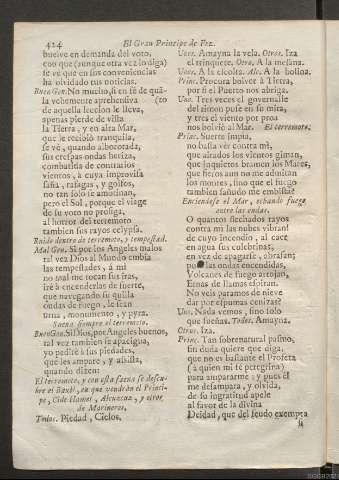 424
El Gran Principe de Fez.
buelve en demanda del voto,
con que (aunque otra vez lo diga)
se ve que en sus conveniencias
ha olvidado tus noticias.
Buen Gen. No mucho, si en fé de quã
la vehemente aprehensiva (to
de aquella leccion le lleva,
apenas pierde de vista
la Tierra, y en alta Mar,
que le recibió tranquila,
se vé, quando alborotada,
sus crespas ondas heriza,
combatida de contrarios
vientos, à cuya improvisa
saña, rafagas, y golfos,
no tan solo se amotinan,
pero el Sol, porque el viage
de su voto no prosiga,
al horror del terremoto
tambien sus rayos eclypsa.
Ruido dentro de terremoto, y tempestad.
Mal Gen. Si por los Angeles malos
tal vez Dios al Mundo embia
las tempestades, à mi
no mal me tocan sus iras,
iré à encenderlas de suerte,
que navegando su quilla
ondas de fuego, le sean
urna, monumento, y pyra.
Suena siempre el terremoto.
Buen Gen. Si Dios, por Angeles buenos,
tal vez tambien se apacigua,
yo pediré à sus piedades,
que les ampare, y assista,
quando dizen:
El terremoto, y con esta faena se descu-
bre el Baxèl, en que vendràn el Princi-
pe, Cide Hamet, Alcuzcuz, y otros
de Marineros.
Todos. Piedad, Cielos.
Unos. Amayna la vela. Otros. Iza
el trinquete. Otro. A la mesana.
Unos. A la escota. Alc. A la bolina.
Princ. Procura bolver à Tierra,
por si el Puerto nos abriga.
Uno. Tres veces el governalle
del timon puse en su mira,
y tres el viento por proa
nos bolvió al Mar. El terremoto.
Princ. Suerte impia,
no basta ver contra mi,
que airados los vientos giman,
que inquietos bramen los Mares,
que fieros aun no admitan
los montes, sino que el fuego
tambien sañudo me embista?
Enciendese el Mar, echando fuego
entre las ondas.
O quantos flechados rayos
contra mi las nubes vibran!
de cuyo incendio, al caer
en agua sus culebrinas,
en vez de apagarse, abrasan;
pues las ondas encendidas,
Volcanes de fuego arrojan,
Etnas de llamas espiran.
No veis paramos de nieve
dar por espumas cenizas?
Uno. Nada vemos, sino solo
que sueñas. Todos. Amayna.
Otros. Iza.
Princ. Tan sobrenatural pasmo,
sin duda quiere que diga,
que no es bastante el Profeta
(à quien mi fé peregrina)
para ampararme; y pues él
me desampara, y olvida,
de su ingratitud apele
al favor de la divina
Deidad, que del feudo exempta